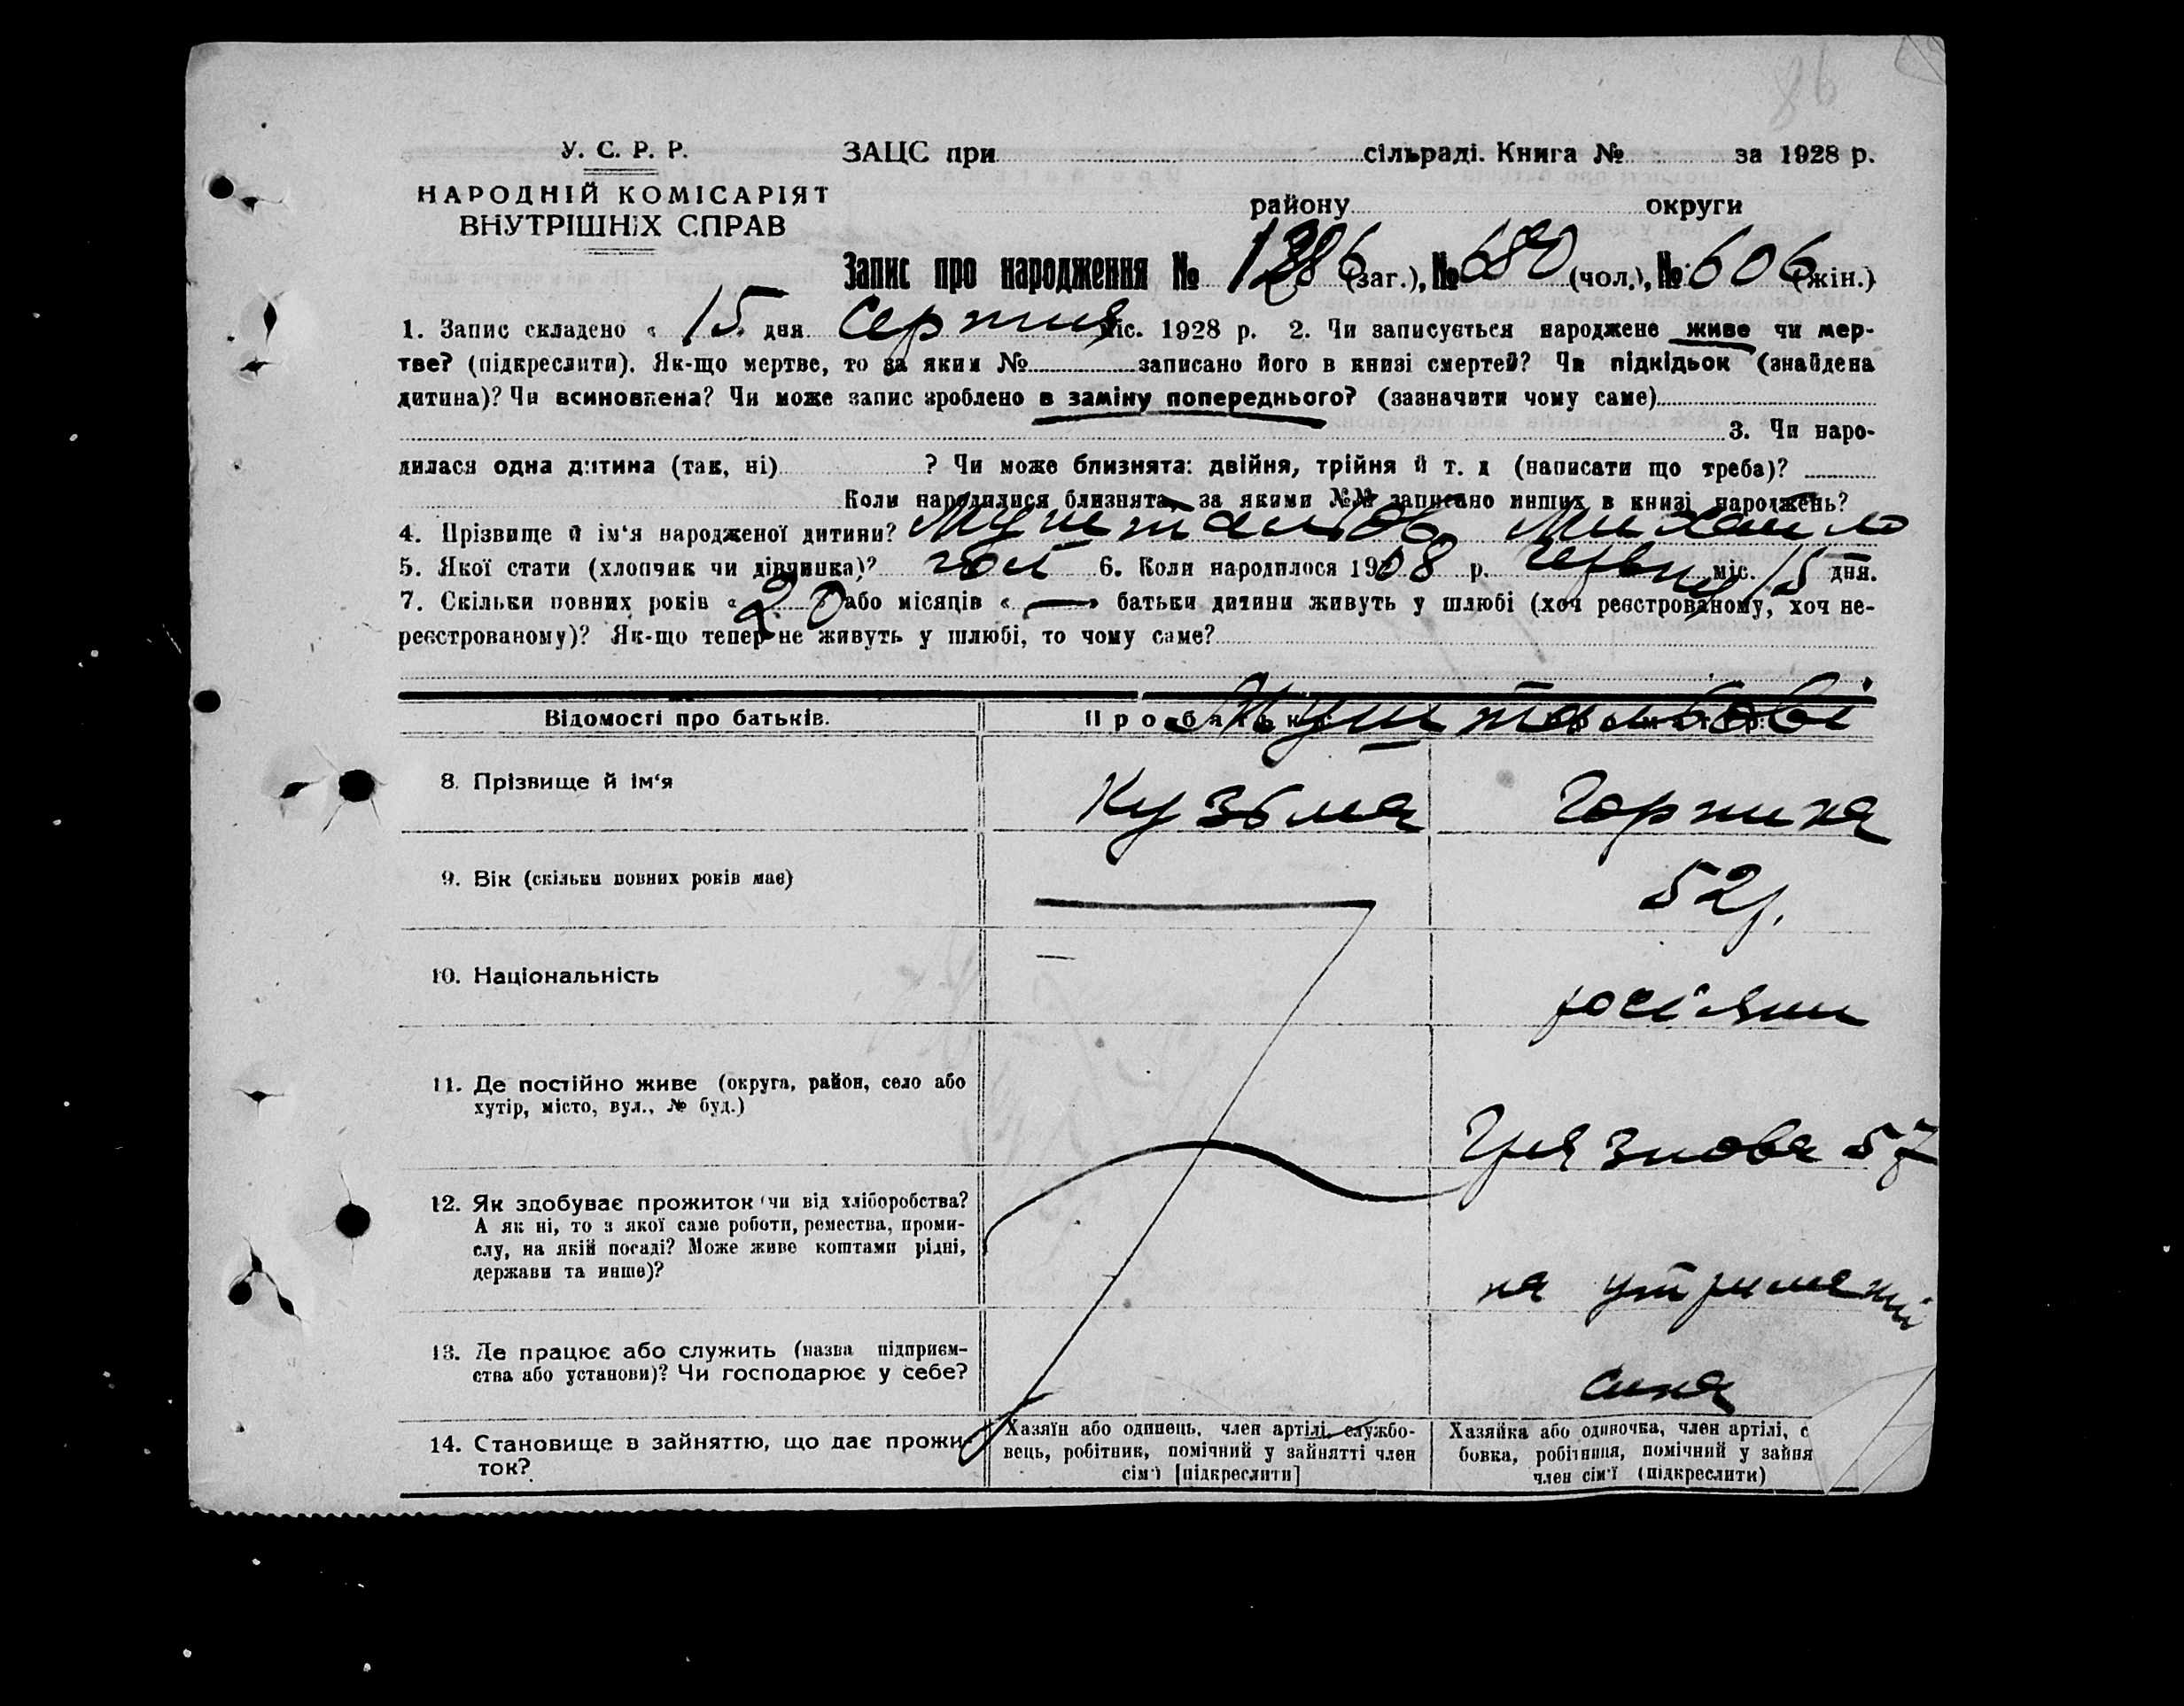 86
У. С. Р. Р.
НАРОДНІЙ КОМІСАРІЯТ
ВНУТРІШНІХ СПРАВ
ЗАЦС при сільраді. Книга № за 1928 р.
району округи
Запис про народження № 1286 (заг.), № 680 (чол.), № 606 (жін.)
1. Запис складено « 15 » дня Серпня міс. 1928 р. 2. Чи записується народжене живе чи мер-
тве? (підкреслити). Як-що мертве, то за яким № записано його в книзі смертей? Чи підкідьок (знайдена
дитина)? Чи всиновлена? Чи може запис зроблено в заміну попереднього? (зазначити чому саме)
3. Чи наро-
дилася одна дитина (так, ні) ? Чи може близнята: двійня, трійня й т. д (написати що треба)?
Коли народилися близнята, за якими №№ записано инших в книзі народжень?
4. Прізвище й ім‘я народженої дитини? Михайло
5. Якої стати (хлопчик чи дівчинка)? чол 6. Коли народилося 1908 р. червня міс. 15 дня.
7. Скільки повних років « 20 » або місяців « — » батьки дитини живуть у шлюбі (хоч реєстрованому, хоч не-
реєстрованому)? Як-що тепер не живуть у шлюбі, то чому саме?
Відомості про батьків.
8. Прізвище й ім‘я Кузьма Горпина
9. Вік (скільки повних років має) — 52 р.
10. Національність — росіяни
11. Де постійно живе (округа, район, село або
хутір, місто, вул., № буд.)
Грязнова 57
12. Як здобуває прожиток (чи від хліборобства?
А як ні, то з якої саме роботи, ремества, проми-
слу, на якій посаді? Може живе коштами рідні,
держави та инше)?
на утриманні
13. Де працює або служить (назва підприєм-
ства або установи)? Чи господарює у себе?
сина
14. Становище в зайняттю, що дає прожи-
ток?
Хазяїн або одинець, член артілі, службо-
вець, робітник, помічний у зайнятті член
сім‘ї [підкреслити]
Хазяйка або одиночка, член артілі, с
бовка, робітниця, помічний у зайня
член сім‘ї (підкреслити)